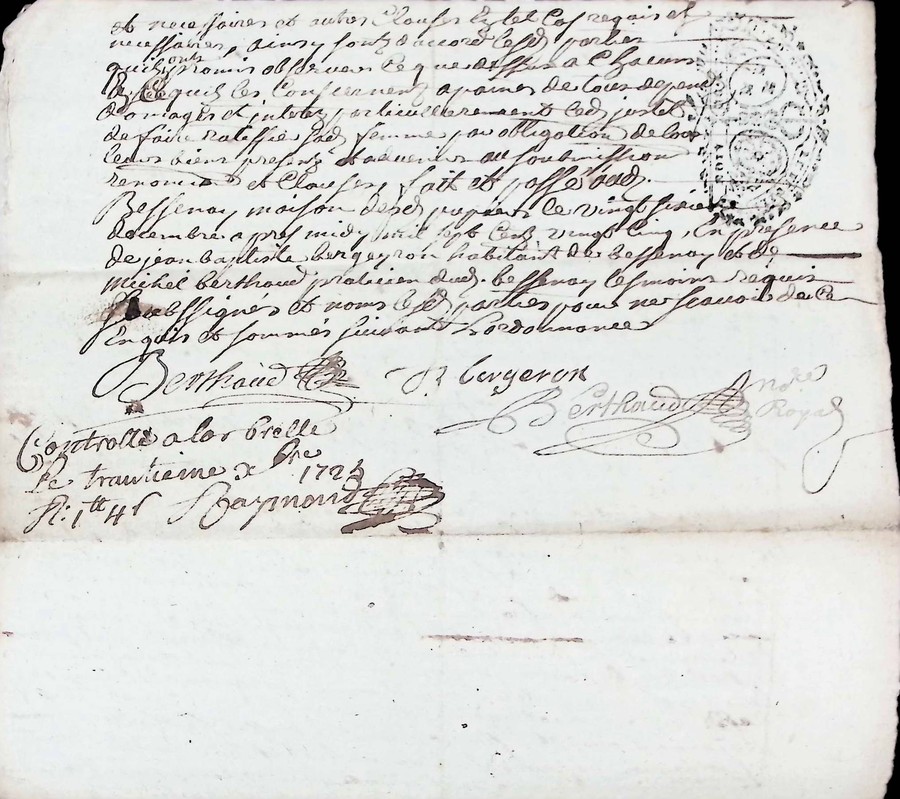 et necessaires et autres Clauses En tel Cas requis et
necessaires, ainsy sont daccord lesd parties
quils ont promis observer Ce que dessus a Chacun
de Ce quil les Concernent a paines de tous depens
domages et interetz particullierement led
de faire ratiffié sad femme par obligation de tous
leurs biens presentz et advenirs au soubmission
renoncia et Clauses, fait et passé aud.
Bessenay maison desd le vingt sixie
decembre apres midy mil sept cent vingt cinq, En presence
de jean baptiste bergeyron habitant de bessenay et de
michel berthaud praticien dud. bessenay tesmoins requis
soubssignés et noms lesd parties pour ne scavoir de Ce
Enquis et sommés suivant Lordonnance
Berthaud
bergeron
Berthaud
André
Royal
Controllé a larbrelle
le trantieme xbre 1725
R: 1tt 4s Raymond